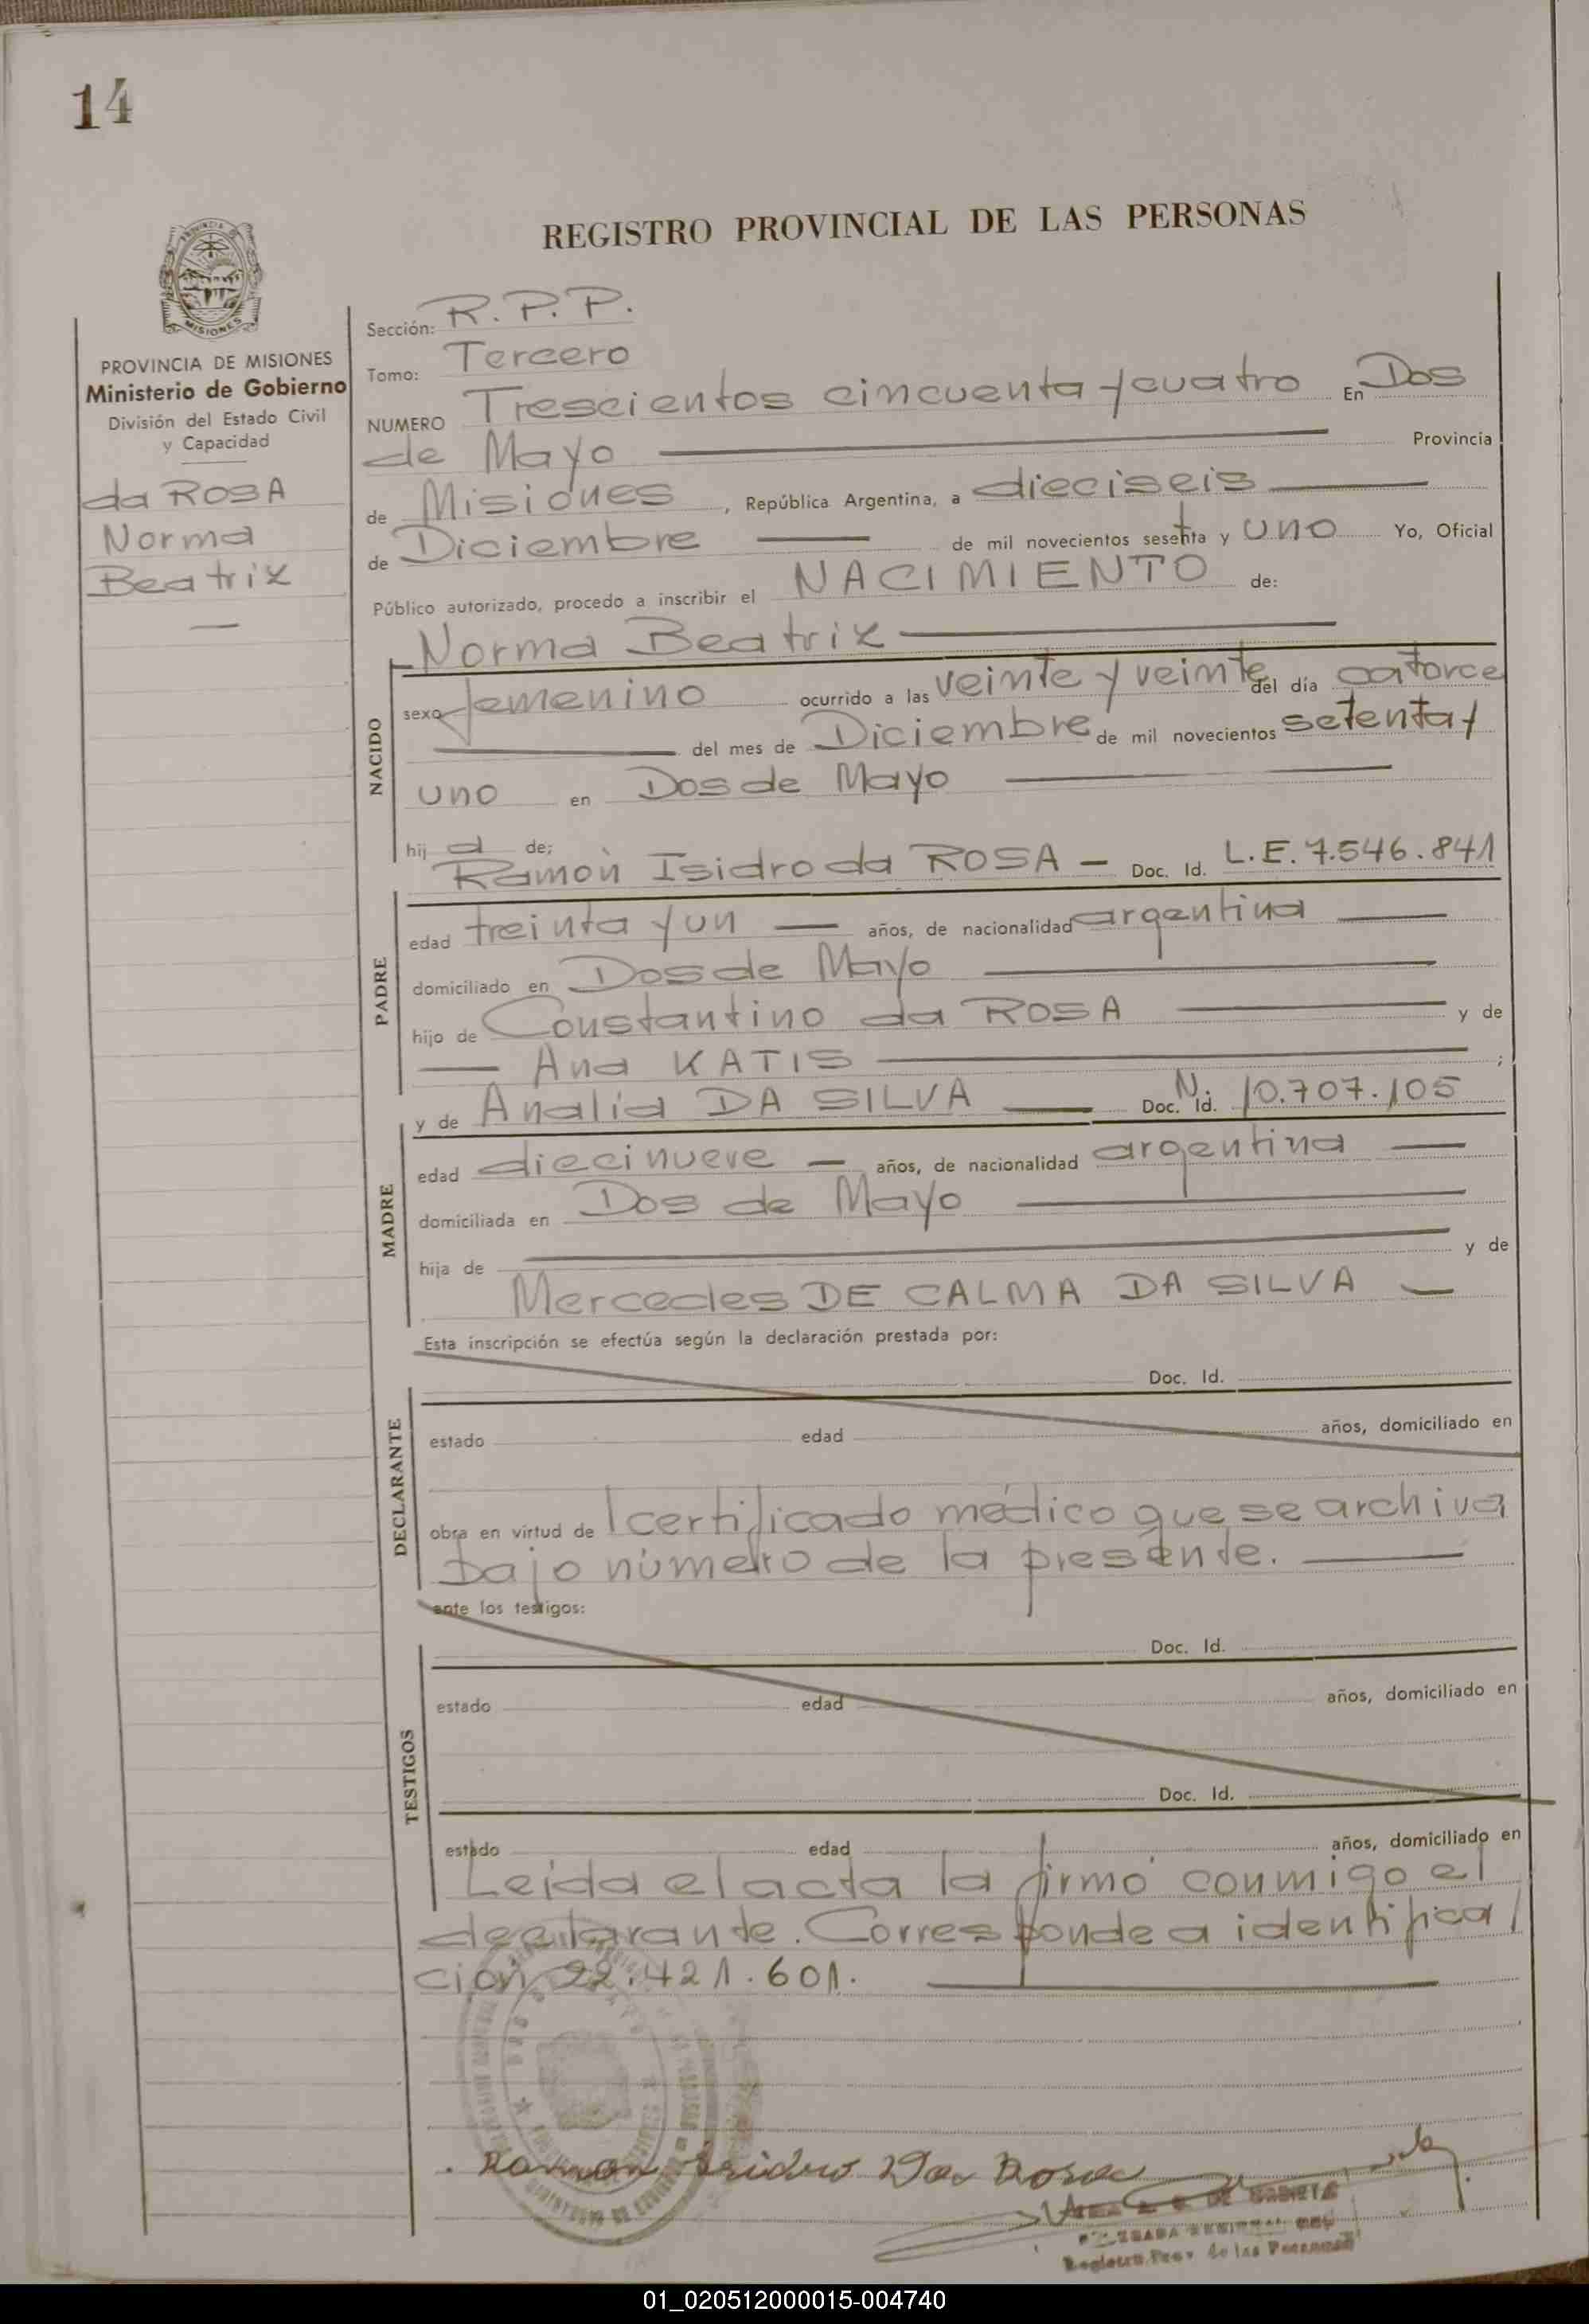 14
REGISTRO PROVINCIAL DE LAS PERSONAS
MISIONES
PROVINCIA DE MISIONES
Ministerio de Gobierno
División del Estado Civil
y Capacidad
da ROSA
Norma
Beatriz
Sección: R. P. P.
Tomo: Tercero
NUMERO Trescientos cincuenta y cuatro En Dos
de Mayo Provincia
de Misiones, República Argentina, a dieciseis
de Diciembre de mil novecientos sesenta y uno Yo, Oficial
Público autorizado, procedo a inscribir el NACIMIENTO de:
Norma Beatriz
NACIDO
sexo femenino ocurrido a las veinte y veinte del día catorce
del mes de Diciembre de mil novecientos setenta y
uno en Dos de Mayo
hija de:
Ramón Isidro da ROSA - Doc. Id. L.E. 7.546.841
PADRE
edad treinta y un años, de nacionalidad argentina
domiciliado en Dos de Mayo
hijo de Constantino da ROSA y de
Ana KATIS ;
y de Analia DA SILVA Doc. Id. N. 10.707.105
MADRE
edad diecinueve años, de nacionalidad argentina
domiciliada en Dos de Mayo
hija de y de
Mercedes DE CALMA DA SILVA
Esta inscripción se efectúa según la declaración prestada por:
Doc. Id.
DECLARANTE
estado edad años, domiciliado en
obra en virtud de certificado médico que se archiva
bajo número de la presente.
ante los testigos:
Doc. Id.
TESTIGOS
estado edad años, domiciliado en
Doc. Id.
estado edad años, domiciliado en
Leida el acta la firmó conmigo el
declarante. Corresponde a identifica/
ción 22.421.601.
Ramon Isidro Da Rosa
Registro Prov. de las Personas
01_020512000015-004740